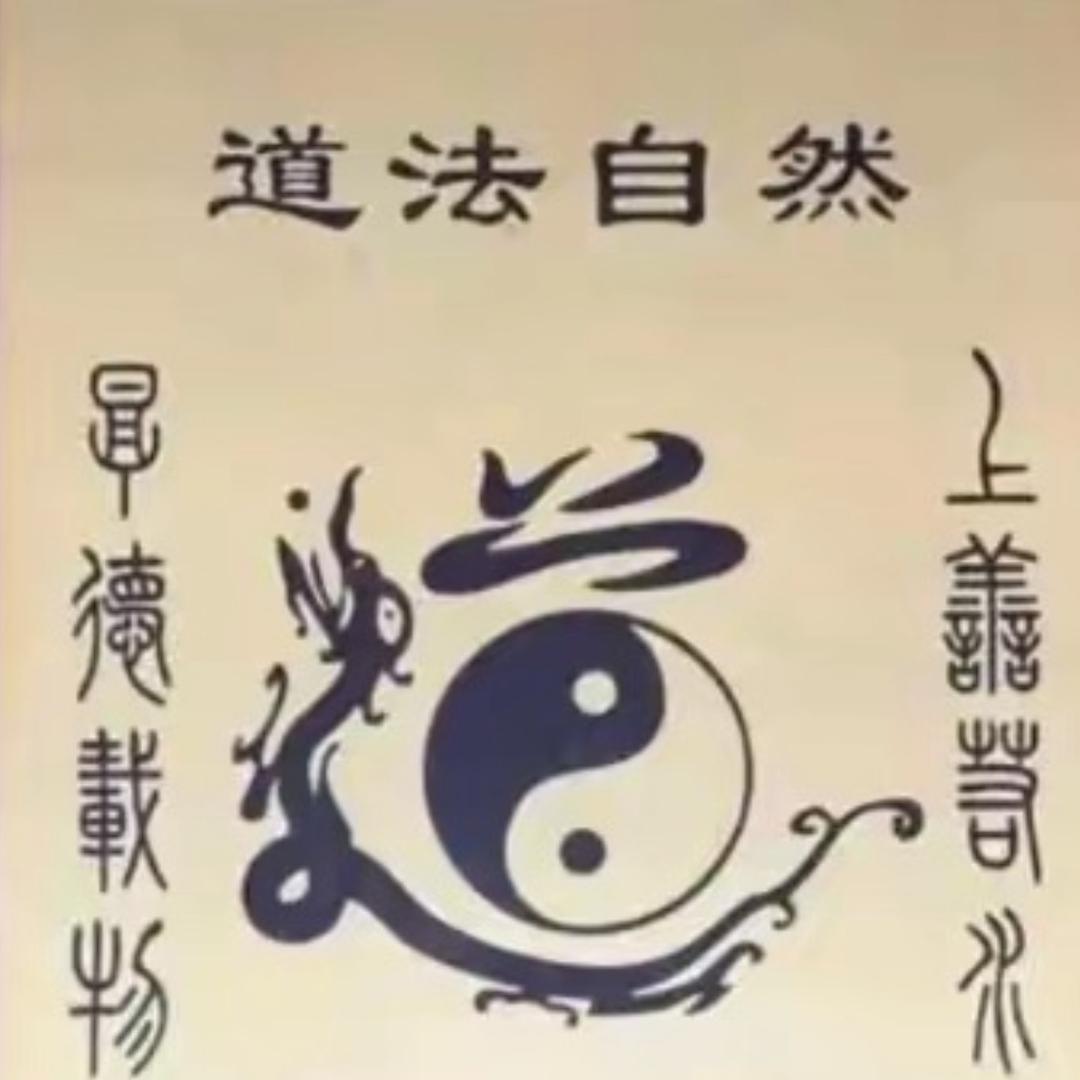 道法自然
上善若水
厚德載物